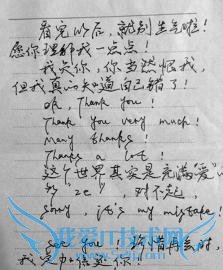 看完以后，就别生气啦！
愿你理解我一点点！
我欠你，你当然恨我，
但我真的知道自己错了！
Oh, Thank you!
Thank you very much!
Many thanks!
Thanks a lot!
这个世界其实是充满爱
对不起，
Sorry, it's my mistake!
See you! 珍惜再去时，
我定加倍还你！